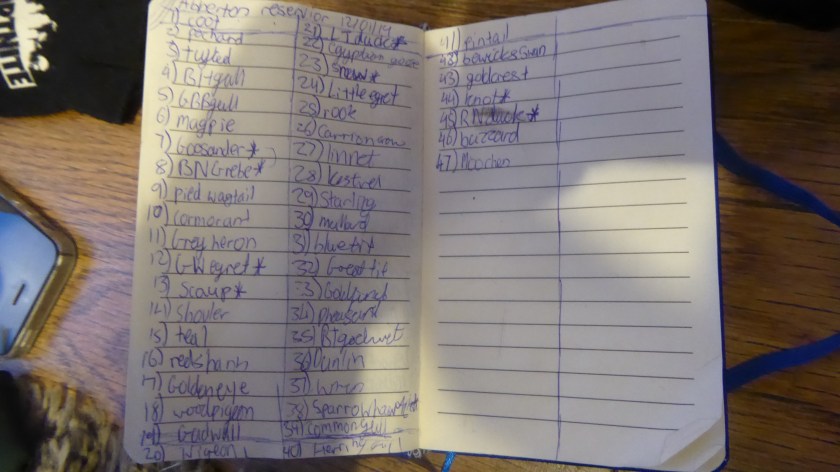 Abberton reservior 12/01/19
1) coot
2) pochard
3) tufted
4) BHgull
5) GBBgull
6) magpie
7) Goosander*
8) BNGrebe*
9) pied wagtail
10) Cormorant
11) Grey heron
12) GWegret*
13) Scaup*
14) Shovler
15) teal
16) redshank
17) Goldeneye
18) woodpigeon
19) Gadwall
20) Wigeon
21) LTduck*
22) Egyptian goose
23) Smew*
24) Little egret
25) rook
26) Carrion crow
27) linnet
28) Kestrel
29) Starling
30) mallard
31) bluetit
32) Great tit
33) Goldfinch
34) pheasant
35) Btgodwit
36) Dunlin
37) Wren
38) Sparrowhawk
39) Common gull
40) Herring gull
41) pintail
42) bewicks swan
43) goldcrest
44) knot*
45) RNduck*
46) buzzard
47) Moorhen